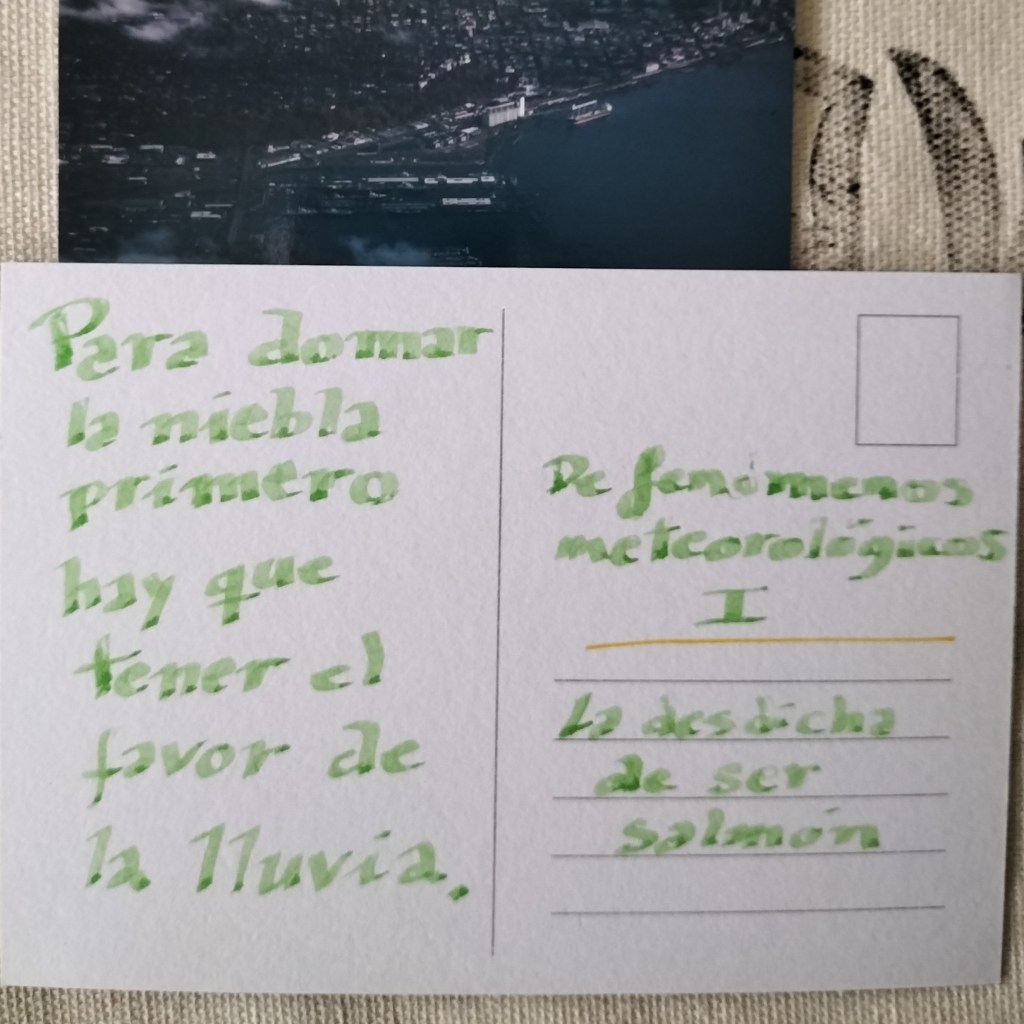 Para domar
la niebla
primero
hay que
tener el
favor de
la lluvia.
De fenómenos
meteorológicos
I
La desdicha
de ser
salmón